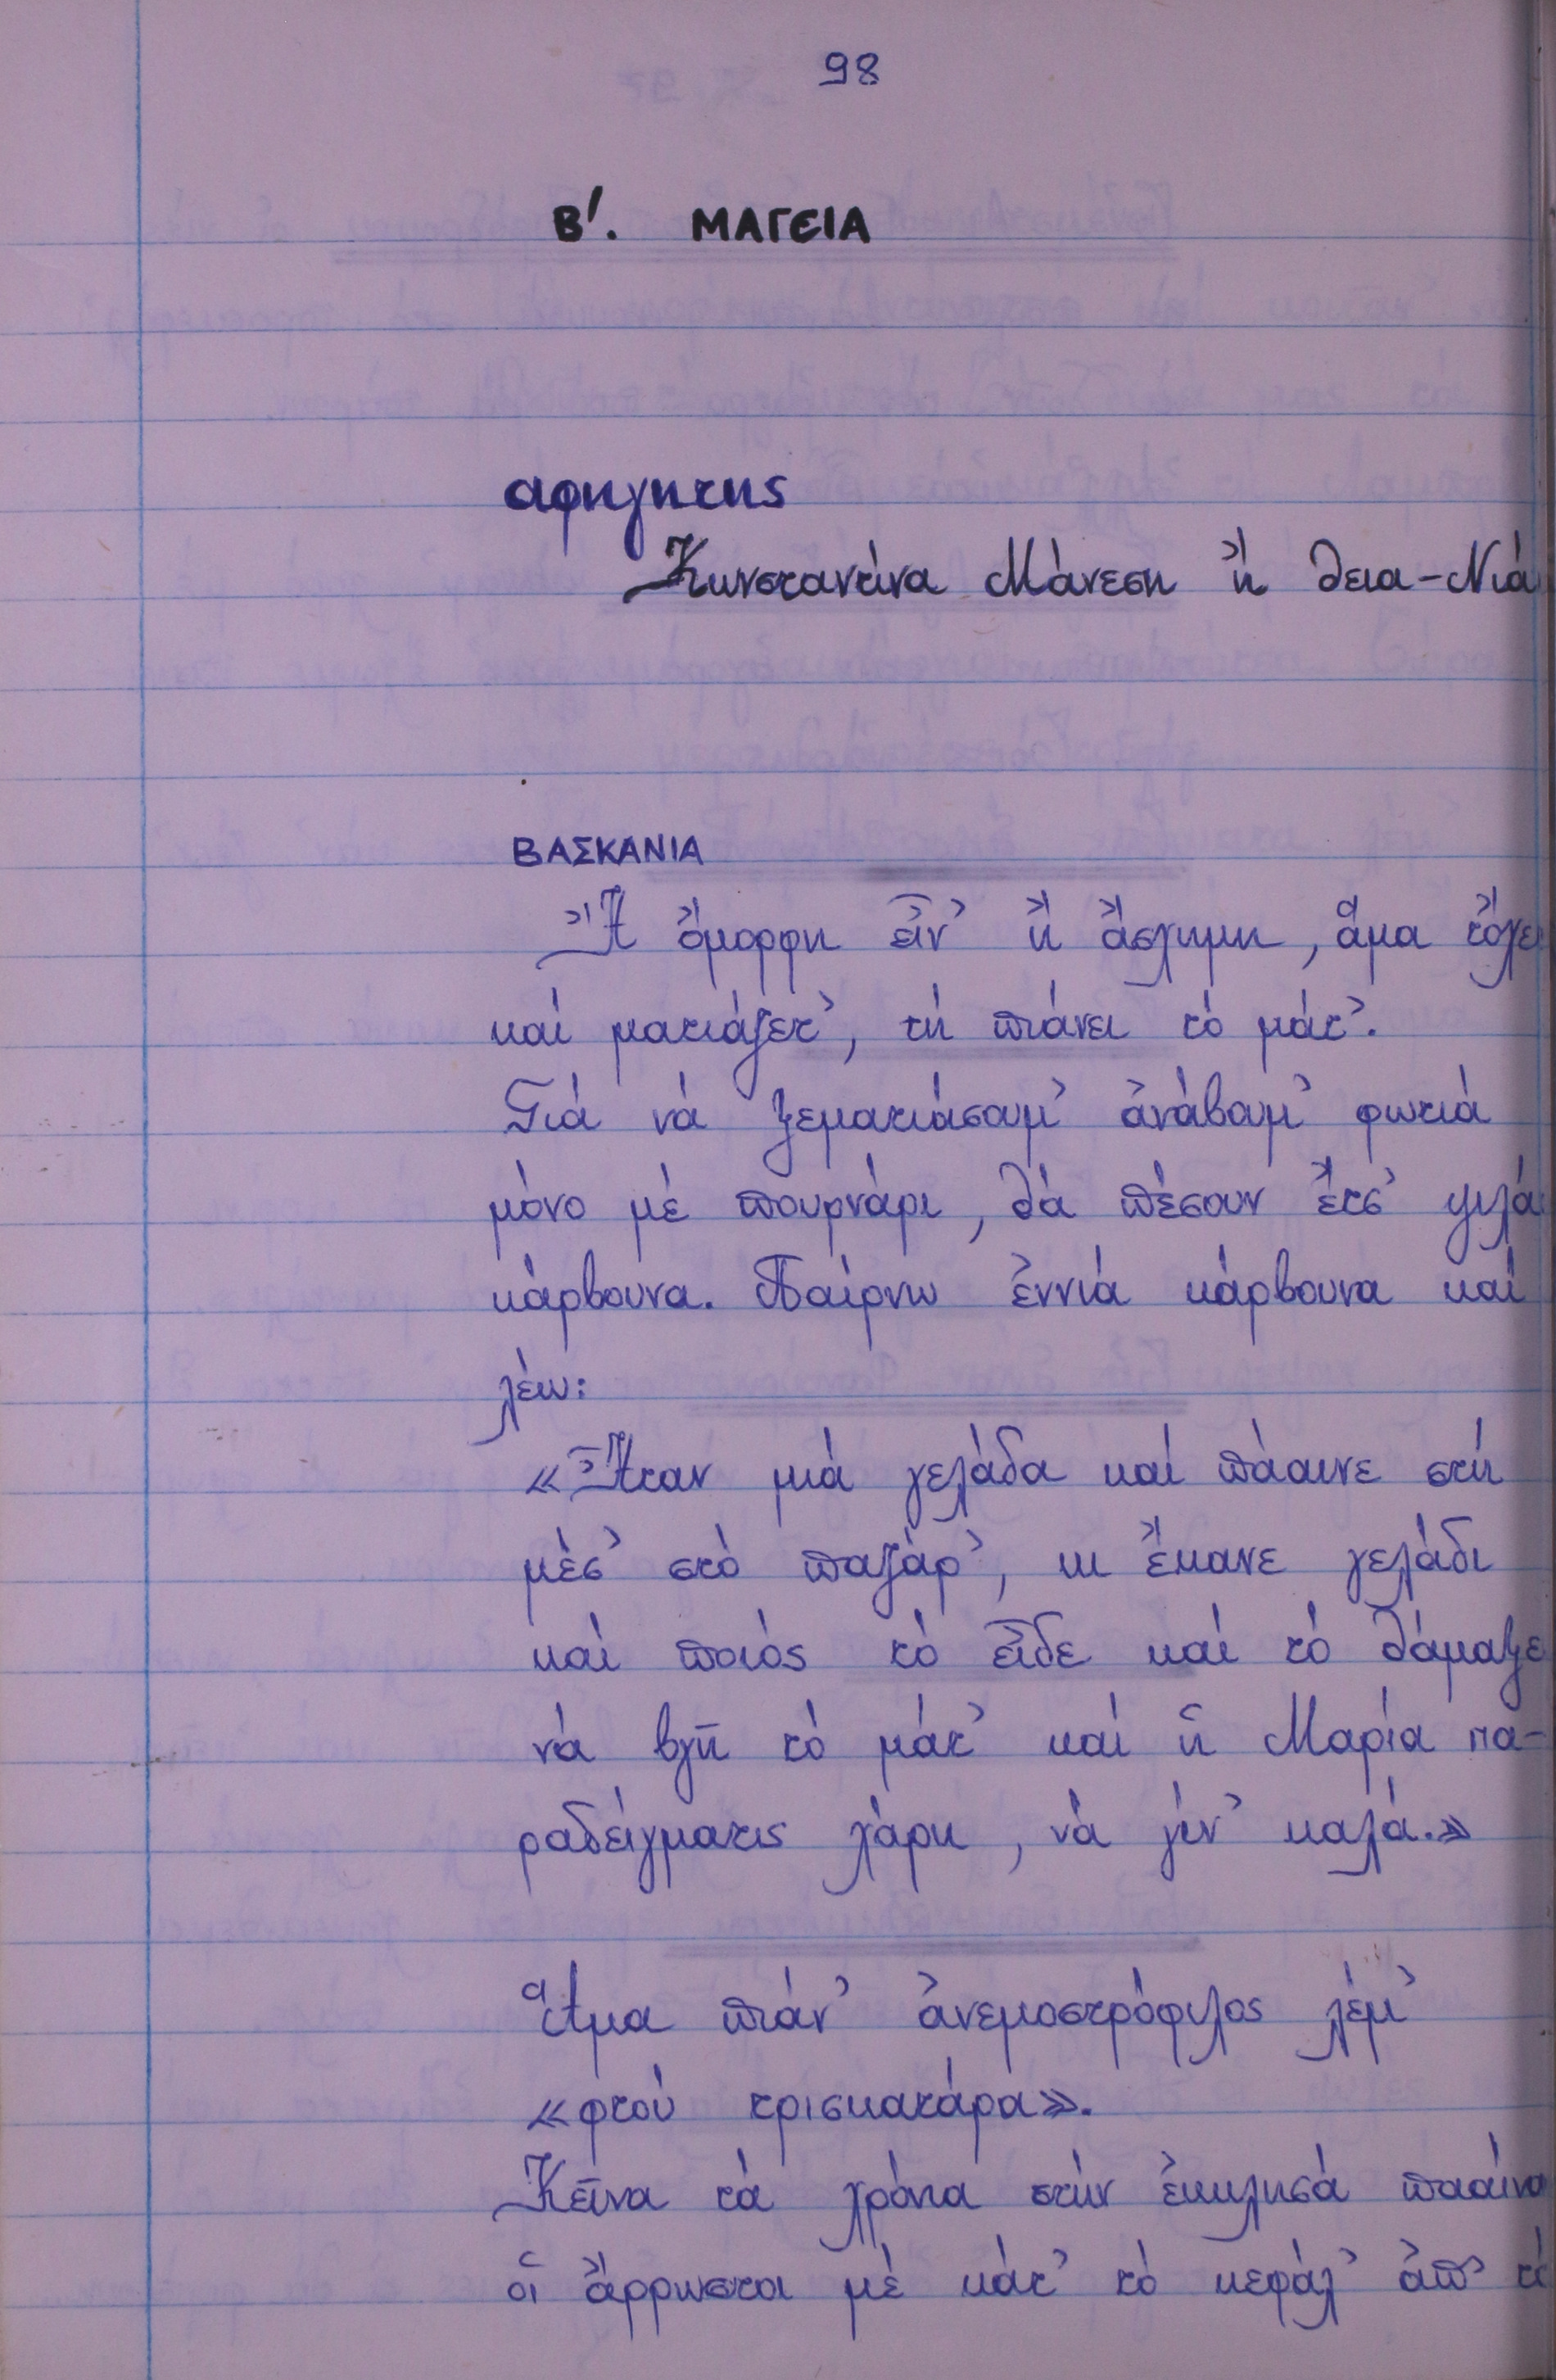 98
Β'. ΜΑΓΕΙΑ
αφηγητης
Κωνσταντίνα Μάνεση ἤ θεια-Νιά
ΒΑΣΚΑΝΙΑ
Ἤ ὄμορφη εἶν' ἤ ἄσχημη, ἅμα τὄχει
καί ματιάζετ', τή πιάνει τό μάτ'.
Γιά νά ξεματιάσαμ' ἀνάβαμ' φωτιά
μόνο μέ πουρνάρι, θά πέσουν ἔτσ' ψιλά
κάρβουνα. Παίρνω ἐννιά κάρβουνα καί
λέω:
«Ἦταν μιά γελάδα καί πάαινε στή
μέσ' στό παζάρ', κι ἔκανε γελάδι
καί ποιός τό εἶδε καί τό θάμαξε
νά βγῆ τό μάτ' καί ἡ Μαρία πα-
ραδείγματις χάρη, νά γίν' καλά.»
Ἅμα πιάν' ἀνεμοστρόφιλος λέμ'
«φτού τρισκατάρα».
Κεῖνα τά χρόνια στήν ἐκκλησά πααίνα
οἱ ἄρρωστοι μέ κάτ' τό κεφάλ' ἀπ' τό